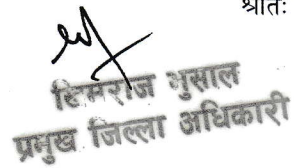 श्रोतः
हिमराज भुसाल
प्रमुख जिल्ला अधिकारी